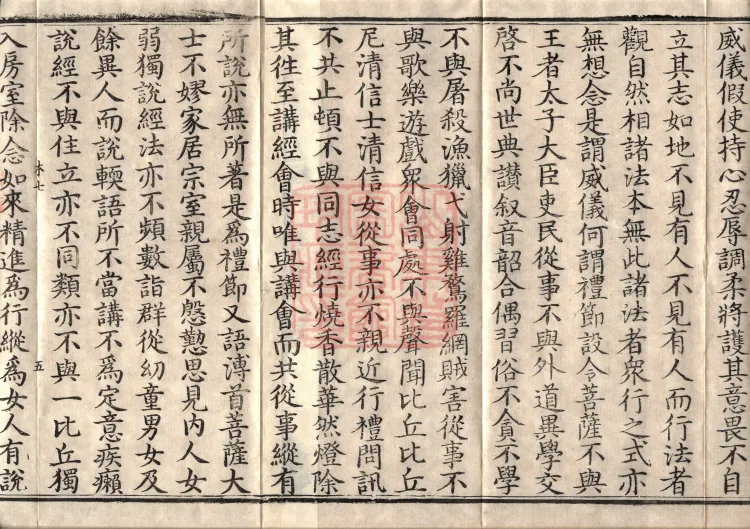 威儀假使持心忍辱調柔將護其意畏不自
立其志如地不見有人不見有人而行法者
觀自然相諸法本無此諸法者衆行之式亦
無想念是謂威儀何謂禮節設令菩薩不與
王者太子大臣吏民從事不與外道異學交
啓不尚世典讃叙音韶合偶習俗不貪不學
不與屠殺漁獵弋射雞鶩羅網賊害從事不
與歌樂遊戲衆會同處不與聲聞比丘比丘
尼清信士清信女從事亦不親近行禮問訊
不共止頓不與同志經行燒香散華然燈除
其徃至講經會時唯與講會而共從事縱有
所說亦無所著是爲禮節又語溥首菩薩大
士不嫪家居宗室親屬不慇懃思見内人女
弱獨說經法亦不頻數詣群從幼童男女及
餘異人而說輭語所不當講不爲定意疾癩
說經不與住立亦不同類亦不與一比丘獨
入房室除念如來精進爲行縱爲女人有說
五